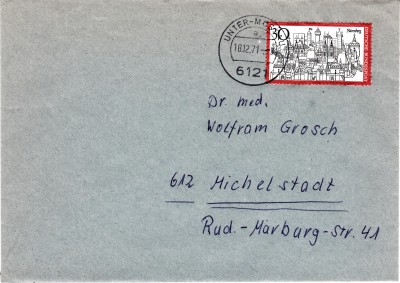 UNTER-MO
a
18.12.71
6121
30
Nürnberg
DEUTSCHE BUNDESPOST
Dr. med.
Wolfram Grosch
612 Michelstadt
Rud.-Marburg-Str. 41